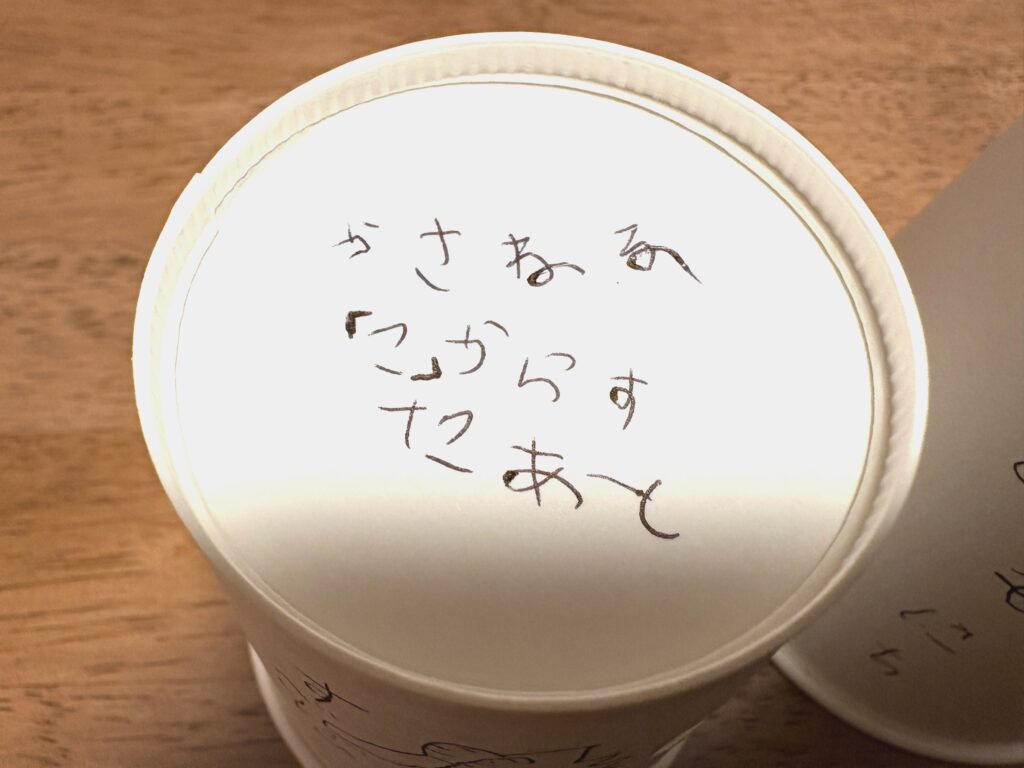 かさねる
「こ」からす
たあと